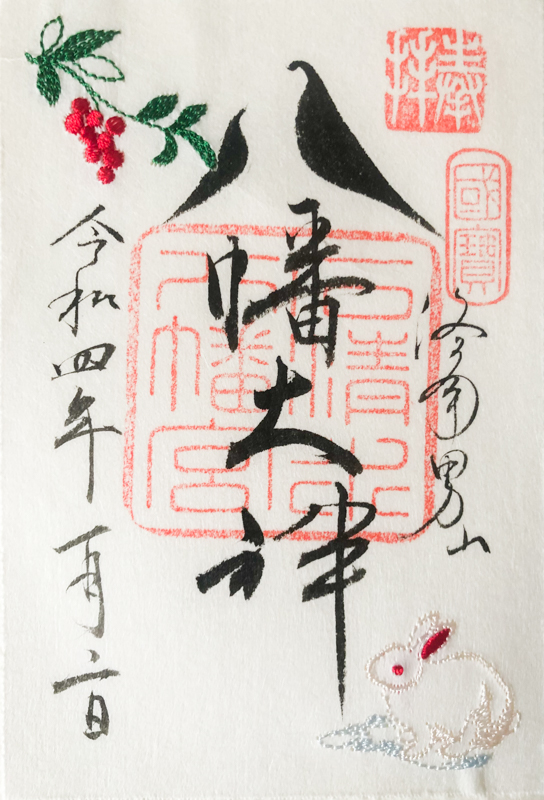 奉拝
國寶
洛南男山
八幡大神
石清水八幡宮
令和四年一月二日